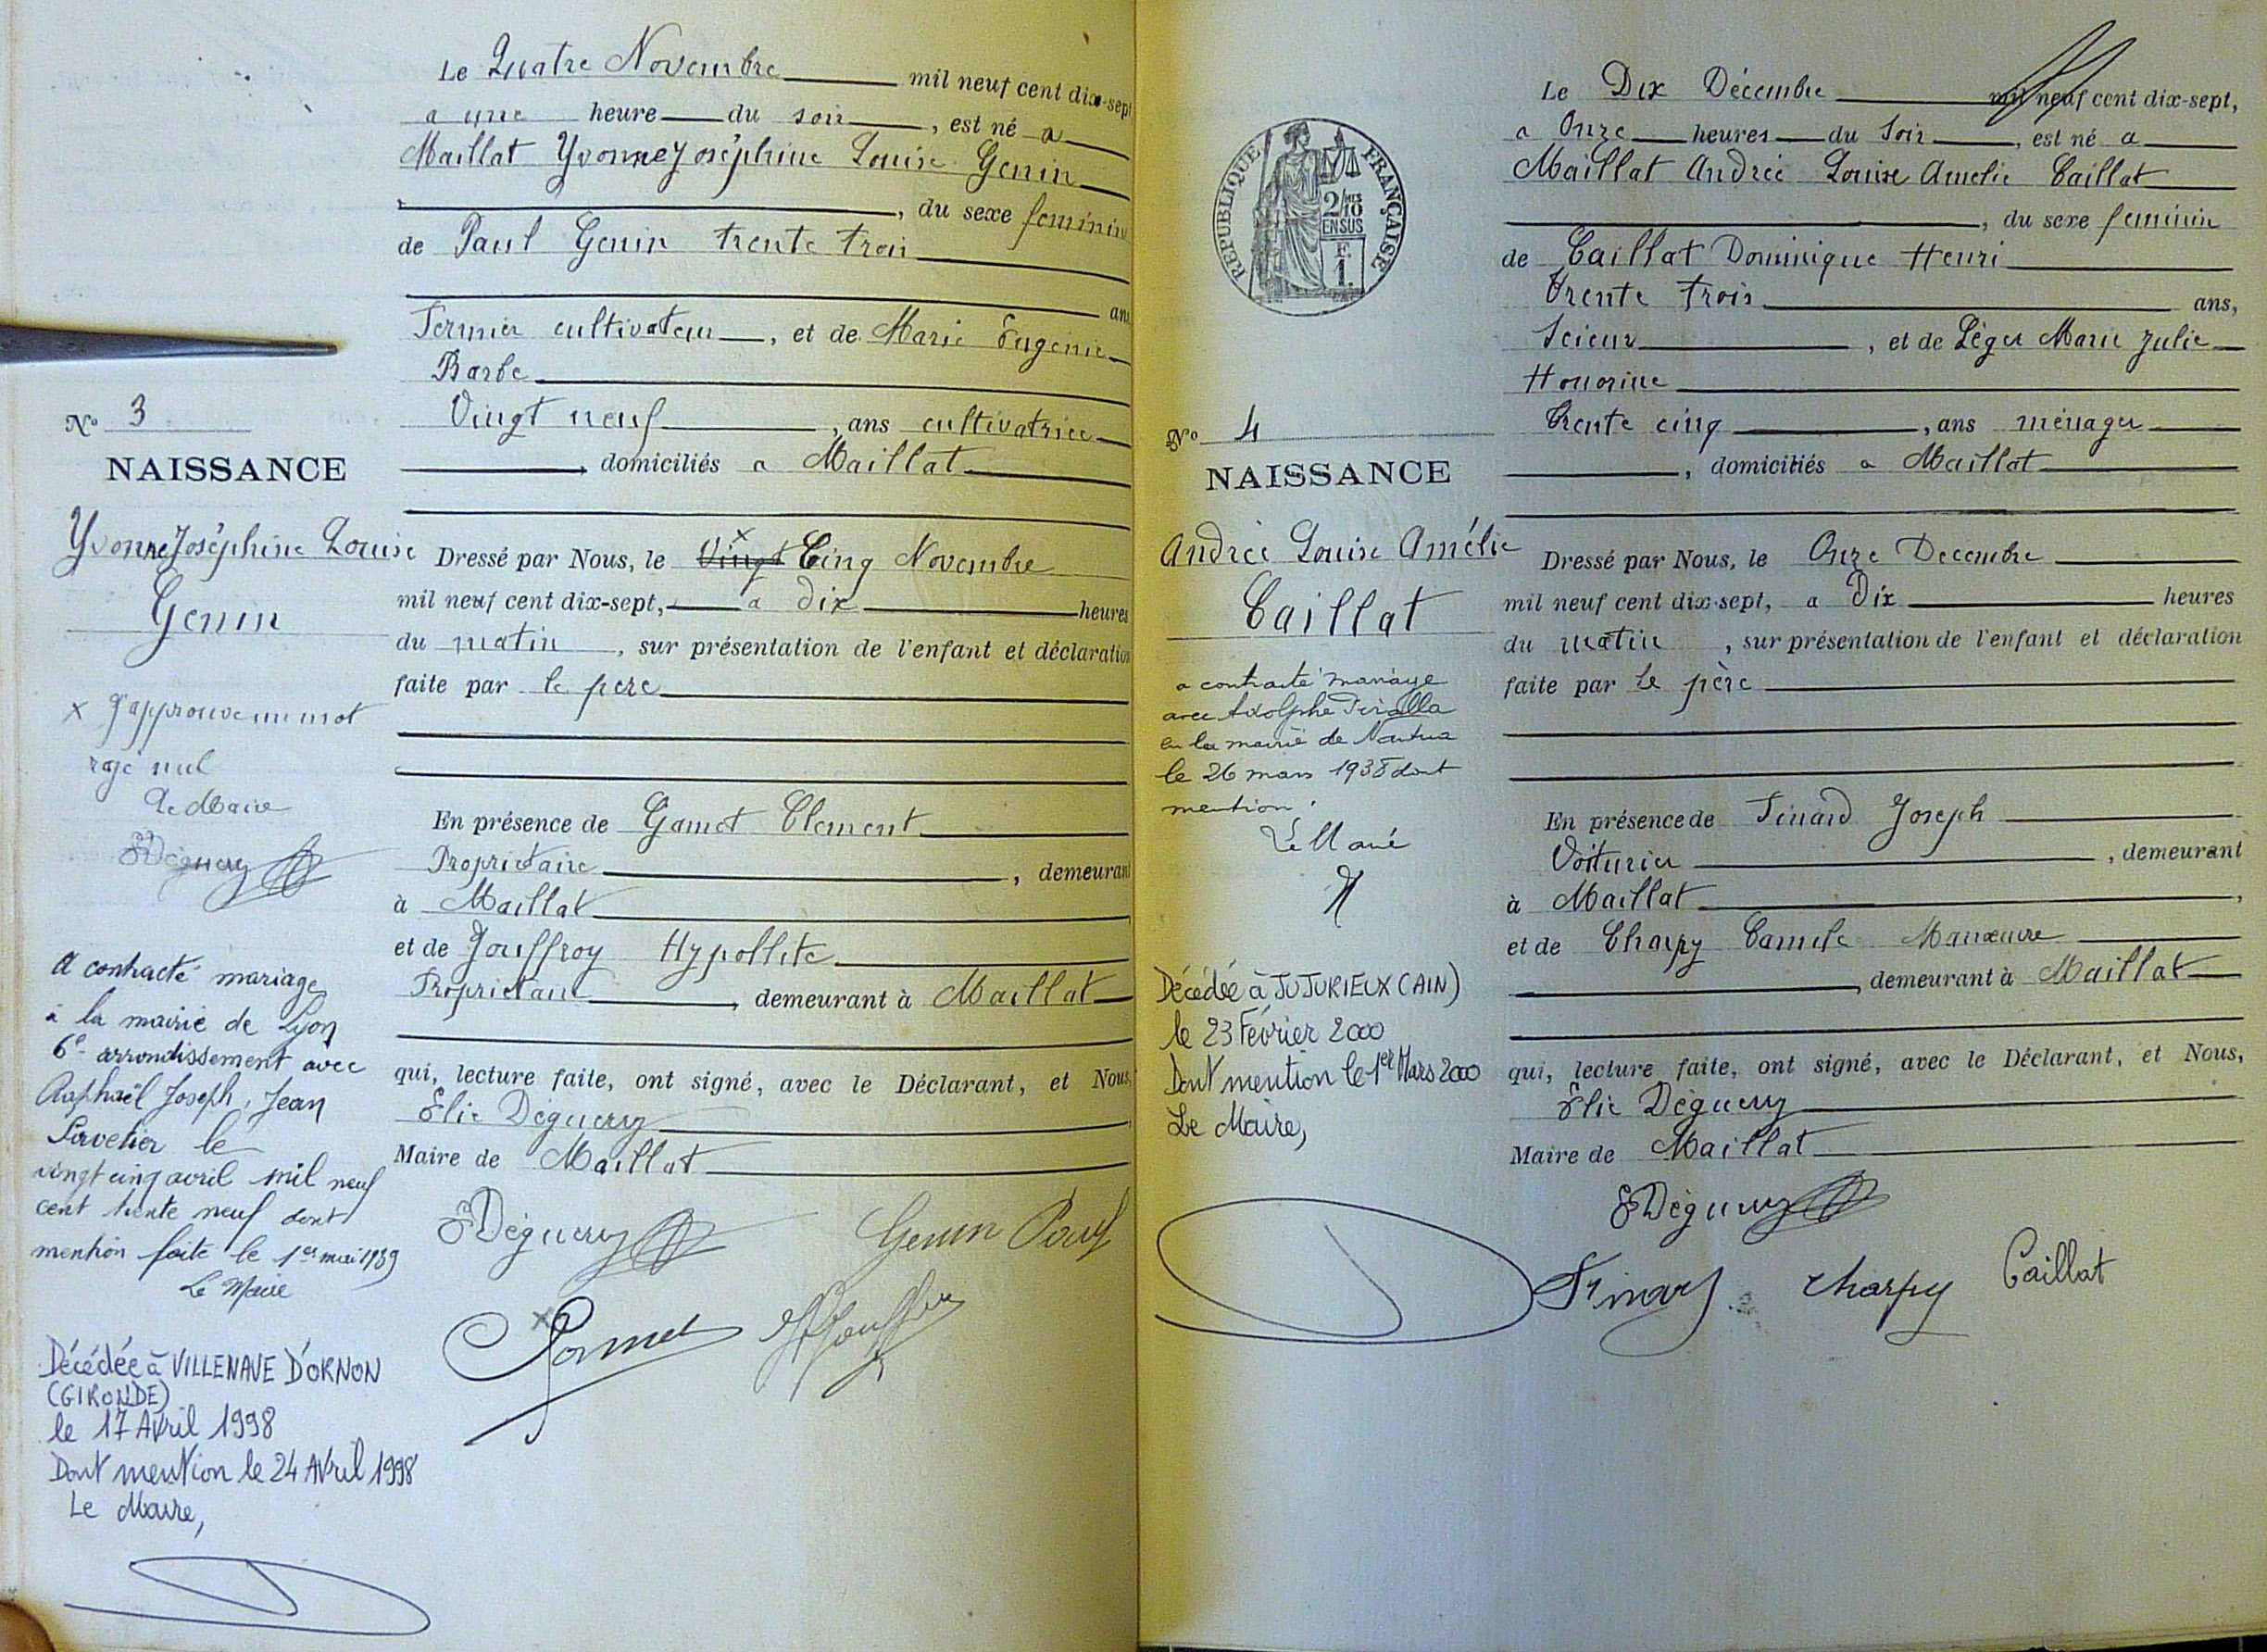 Le Quatre Novembre mil neuf cent dix-sept
a une heure du soir, est né a
Maillat Yvonne Joséphine Louise Genin
, du sexe feminin
de Paul Genin trente trois
ans
Fermier cultivateur, et de Marie Eugenie
Barbe
Vingt neuf, ans cultivatrice
, domiciliés a Maillat
N° 3
NAISSANCE
Yvonne Joséphine Louise
Genin
x J'approuve un mot
rayé nul
Le Maire
EDéguerry
A contracté mariage
à la mairie de Lyon
6e arrondissement avec
Raphaël Joseph, Jean
le
vingt cinq avril mil neuf
cent trente neuf dont
mention faite le 1er mai 1939
Le Maire
Décédée à VILLENAVE D'ORNON
(GIRONDE)
le 17 Avril 1998
Dont mention le 24 Avril 1998
Le Maire,
Dressé par Nous, le Vingt x Cinq Novembre
mil neuf cent dix-sept, a dix heures
du matin, sur présentation de l'enfant et déclaration
faite par le père
En présence de Gamet Clement
Proprietaire, demeurant
à Maillat
et de Jouffroy Hypollite
Proprietaire, demeurant à Maillat
qui, lecture faite, ont signé, avec le Déclarant, et Nous,
Elie Déguerry
Maire de Maillat
EDéguerry Genin Paul
x Gamet Jouffroy
Le Dix Décembre mil neuf cent dix-sept,
a Onze heures du Soir, est né a
Maillat Andrée Louise Amelie Caillat
, du sexe feminin
de Caillat Dominique Henri
Trente trois ans,
Scieur, et de Léger Marie Julie
Honorine
Trente cinq, ans ménager
, domiciliés a Maillat
REPUBLIQUE FRANÇAISE
2/10mes
EN SUS
F.
1.
N° 4
NAISSANCE
Andrée Louise Amélie
Caillat
a contracté mariage
avec Adolphe
en la mairie de Nantua
le 26 mars 1938 dont
mention.
Le Maire
Décédée à JUJURIEUX (AIN)
le 23 Février 2000
Dont mention le 1er Mars 2000
Le Maire,
Dressé par Nous, le Onze Decembre
mil neuf cent dix-sept, a Dix heures
du matin, sur présentation de l'enfant et déclaration
faite par Le père
En présence de Sinard Joseph
Voiturier, demeurant
à Maillat,
et de Charpy Camile Manœuvre
, demeurant à Maillat
qui, lecture faite, ont signé, avec le Déclarant, et Nous,
Elie Déguerry
Maire de Maillat
EDéguerry
Sinard Charpy Caillat